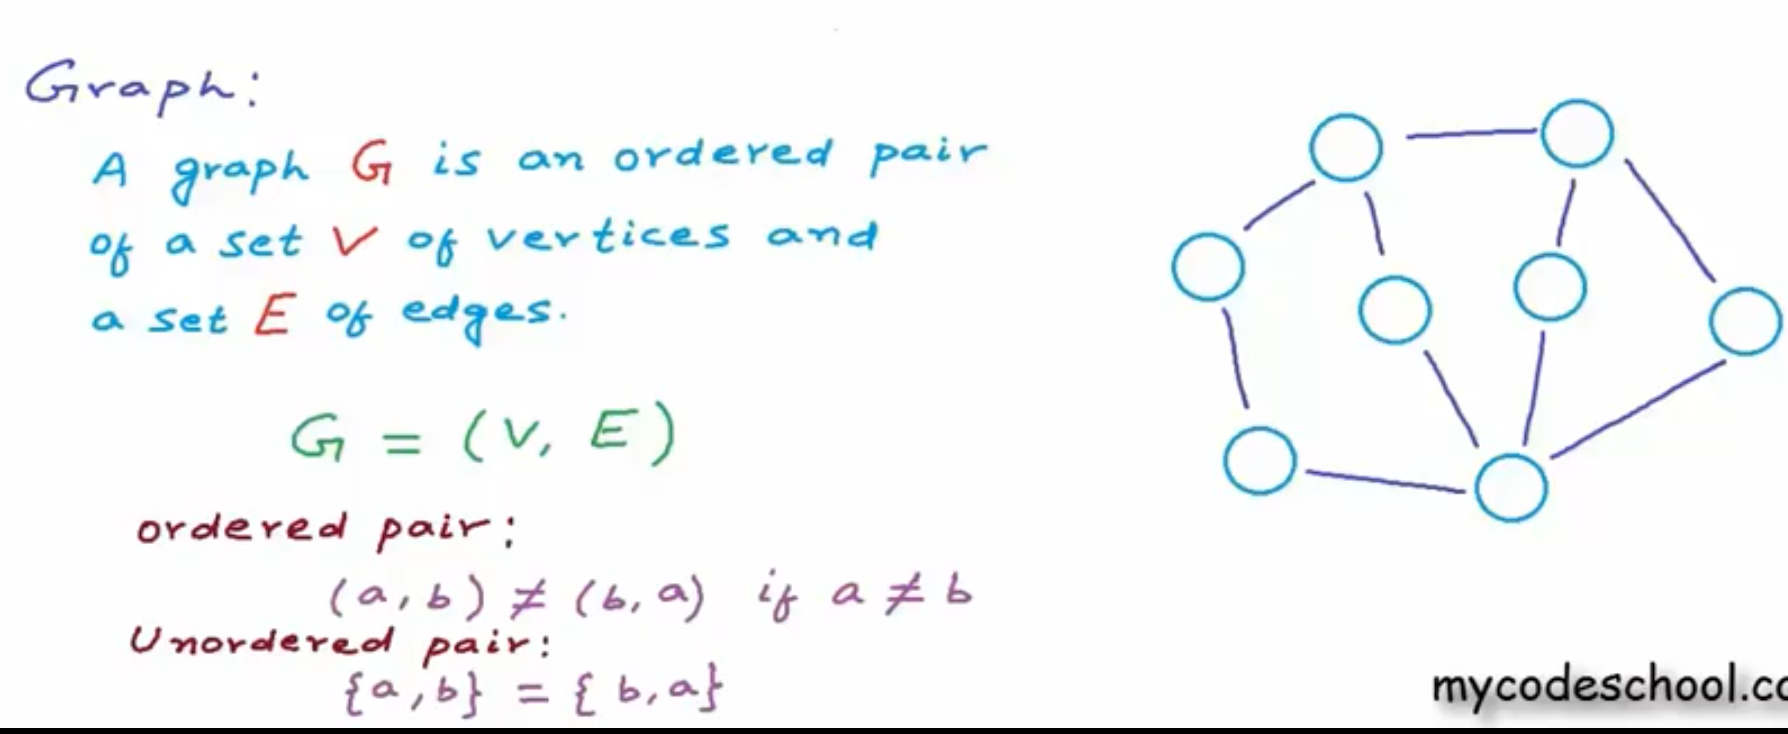 Graph:
A graph G is an ordered pair
of a set V of vertices and
a set E of edges.
G = (V, E)
ordered pair:
(a, b) ≠ (b, a) if a ≠ b
Unordered pair:
{a, b} = {b, a}
mycodeschool.co